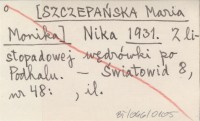 o [SZCZEPAŃSKA Maria
Monika]. Nika 1931. Z li-
stopadowej wędrówki po
Podhalu. – Światowid 8,
nr 48: , il.